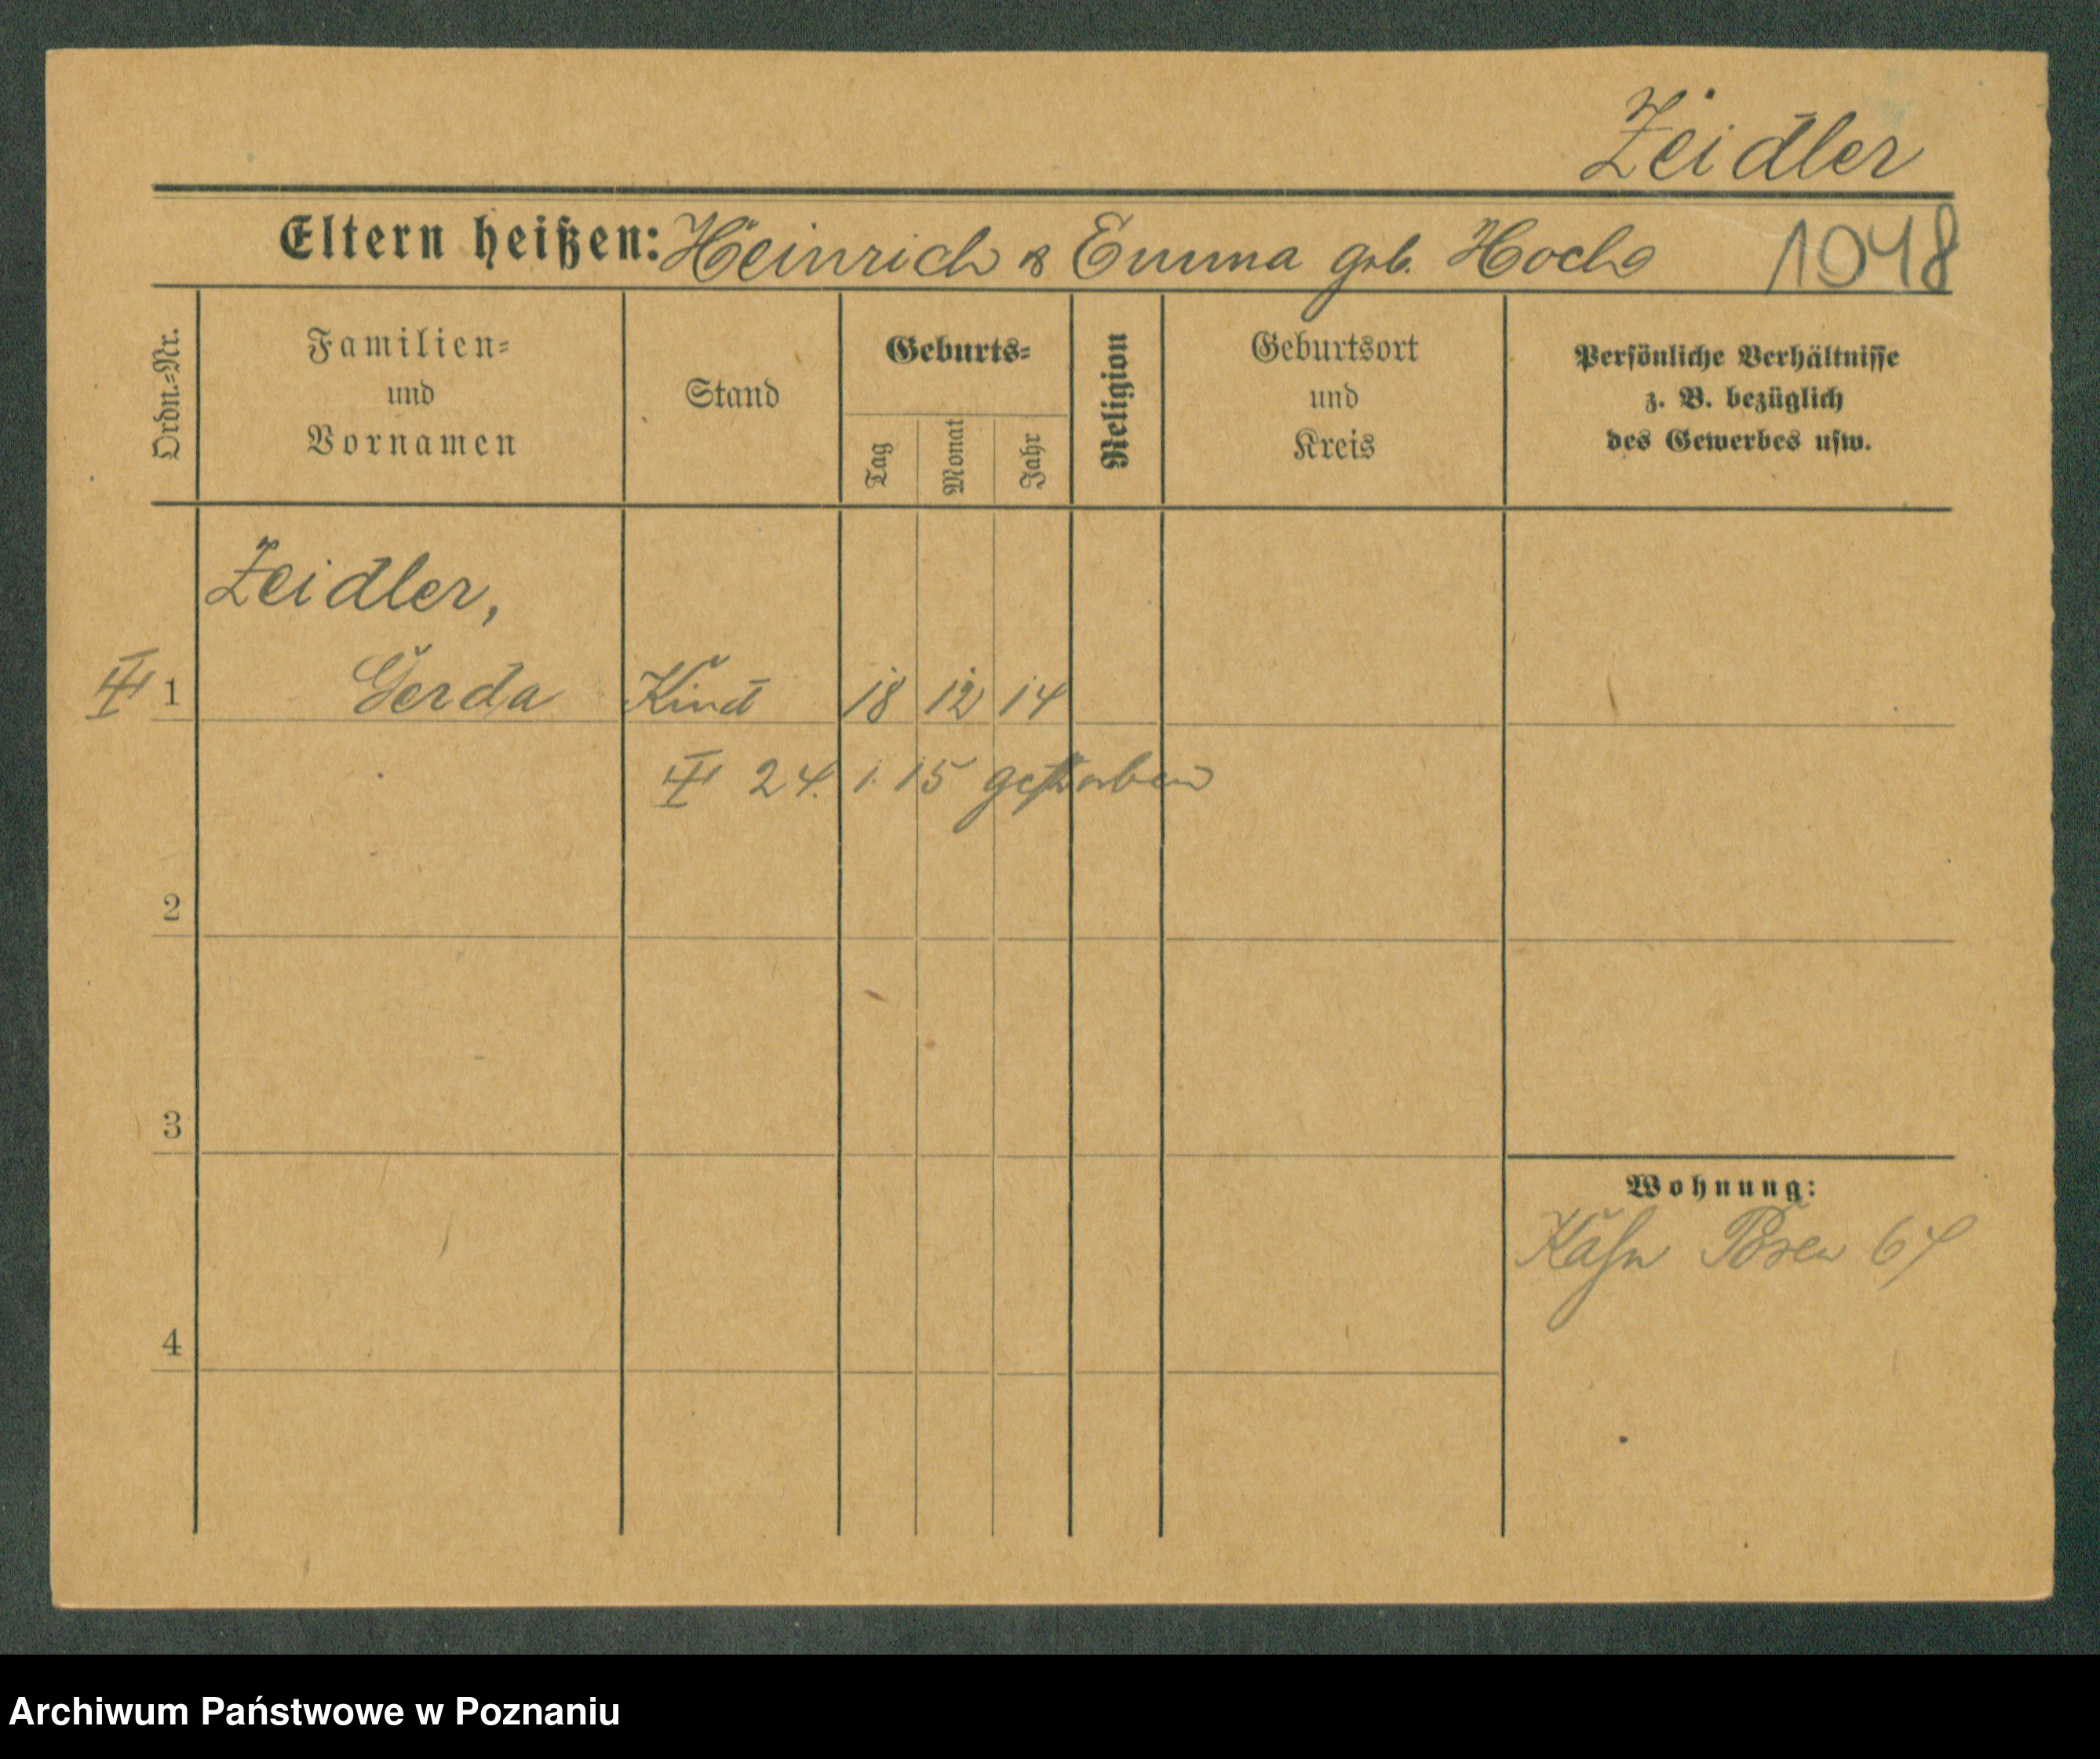 Zeidler
Eltern heißen: Heinrich & Emma geb. Hoch 1048
Ordn.=Nr.
Familien=
und
Vornamen
Stand
Geburts=
Tag
Monat
Jahr
Religion
Geburtsort
und
Kreis
Persönliche Verhältnisse
z. B. bezüglich
des Gewerbes usw.
Zeidler,
1 Gerda Kind 18 12 14
24. 1. 15 gestorben
2
3
4
Wohnung:
Kahn Posen 64
Archiwum Państwowe w Poznaniu